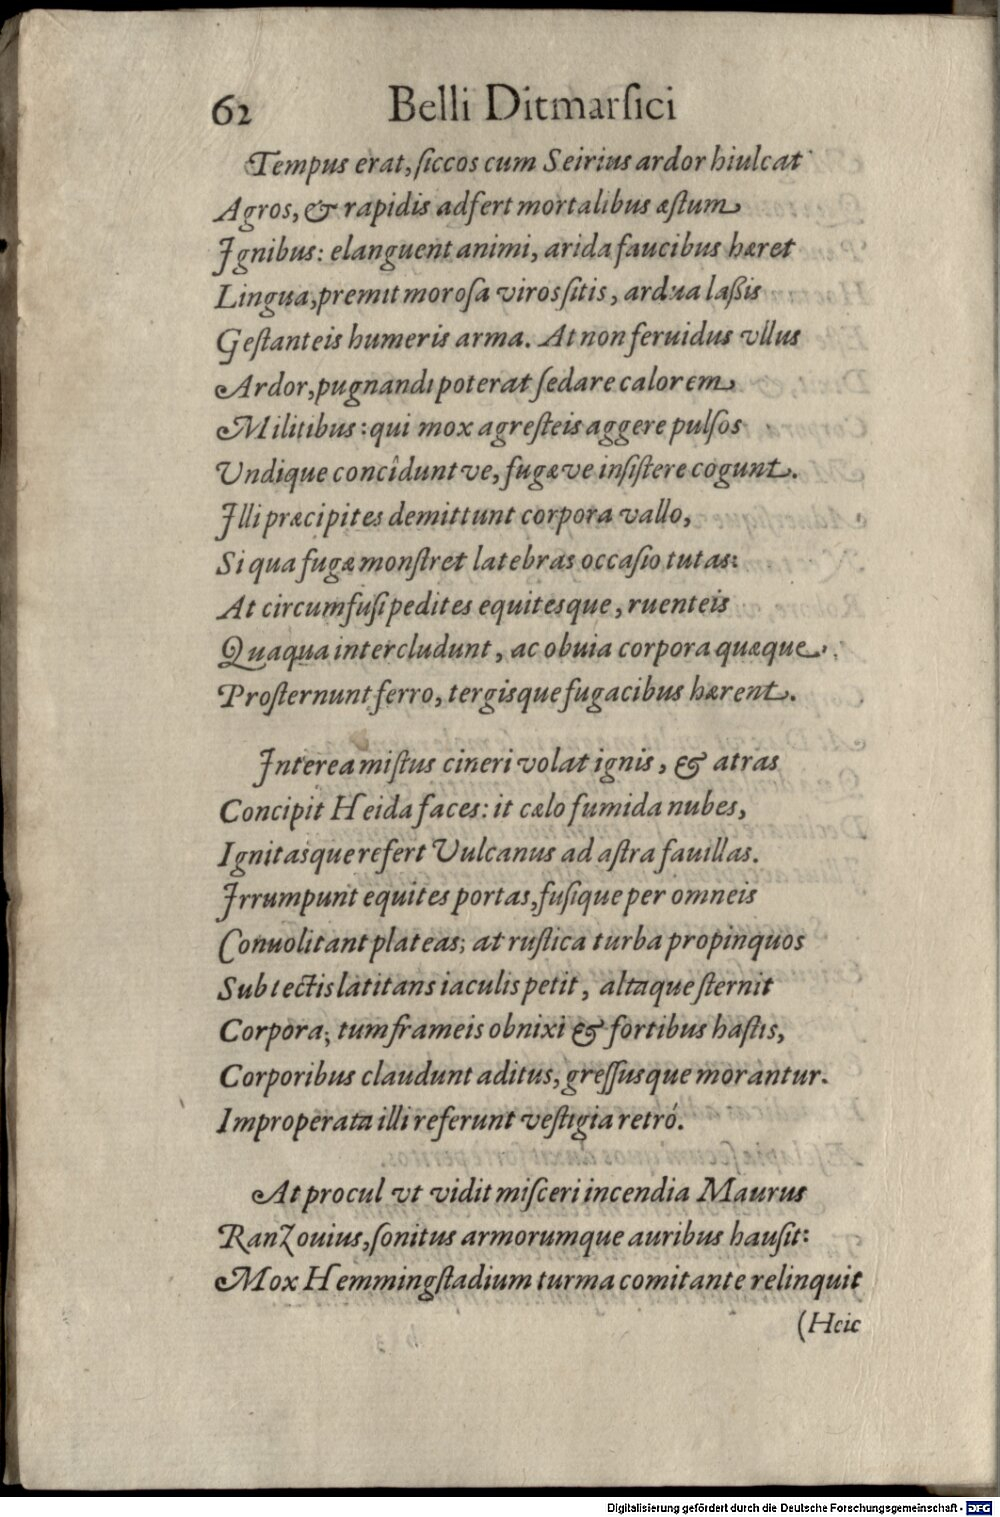 62 Belli Ditmarſici
Tempus erat, ſiccos cum Seirius ardor hiulcat
Agros, & rapidis adfert mortalibus æſtum
Ignibus: elanguent animi, arida faucibus hæret
Lingua, premit moroſa viros ſitis, ardua laßis
Geſtanteis humeris arma. At non feruidus vllus
Ardor, pugnandi poterat ſedare calorem
Militibus: qui mox agreſteis aggere pulſos
Undique concîdunt ve, fugæ ve inſiſtere cogunt.
Illi præcipites demittunt corpora vallo,
Si qua fugæ monſtret latebras occaſio tutas:
At circumfuſi pedites equitesque, ruenteis
Quaqua intercludunt, ac obuia corpora quæque
Proſternunt ferro, tergisque fugacibus hærent.
Interea miſtus cineri volat ignis, & atras
Concipit Heida faces: it cælo fumida nubes,
Ignitasque refert Vulcanus ad aſtra fauillas.
Irrumpunt equites portas, fuſique per omneis
Conuolitant plateas; at ruſtica turba propinquos
Sub tectis latitans iaculis petit, altaque ſternit
Corpora; tum frameis obnixi & fortibus haſtis,
Corporibus claudunt aditus, greſſusque morantur.
Improperata illi referunt veſtigia retró.
At procul vt vidit miſceri incendia Maurus
Ranzouius, ſonitus armorumque auribus hauſit:
Mox Hemmingſtadium turma comitante relinquit
(Heic
Digitalisierung gefördert durch die Deutsche Forschungsgemeinschaft - DFG